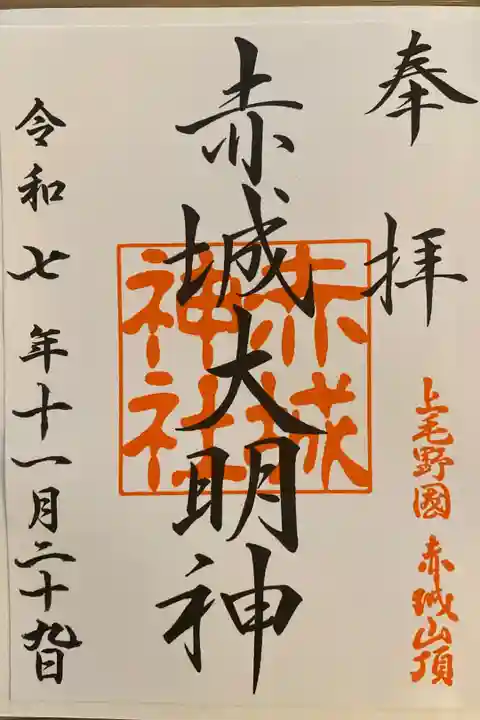 奉拝
上毛野國 赤城山頂
赤城大明神
赤城
神社
令和七年十一月二十九日